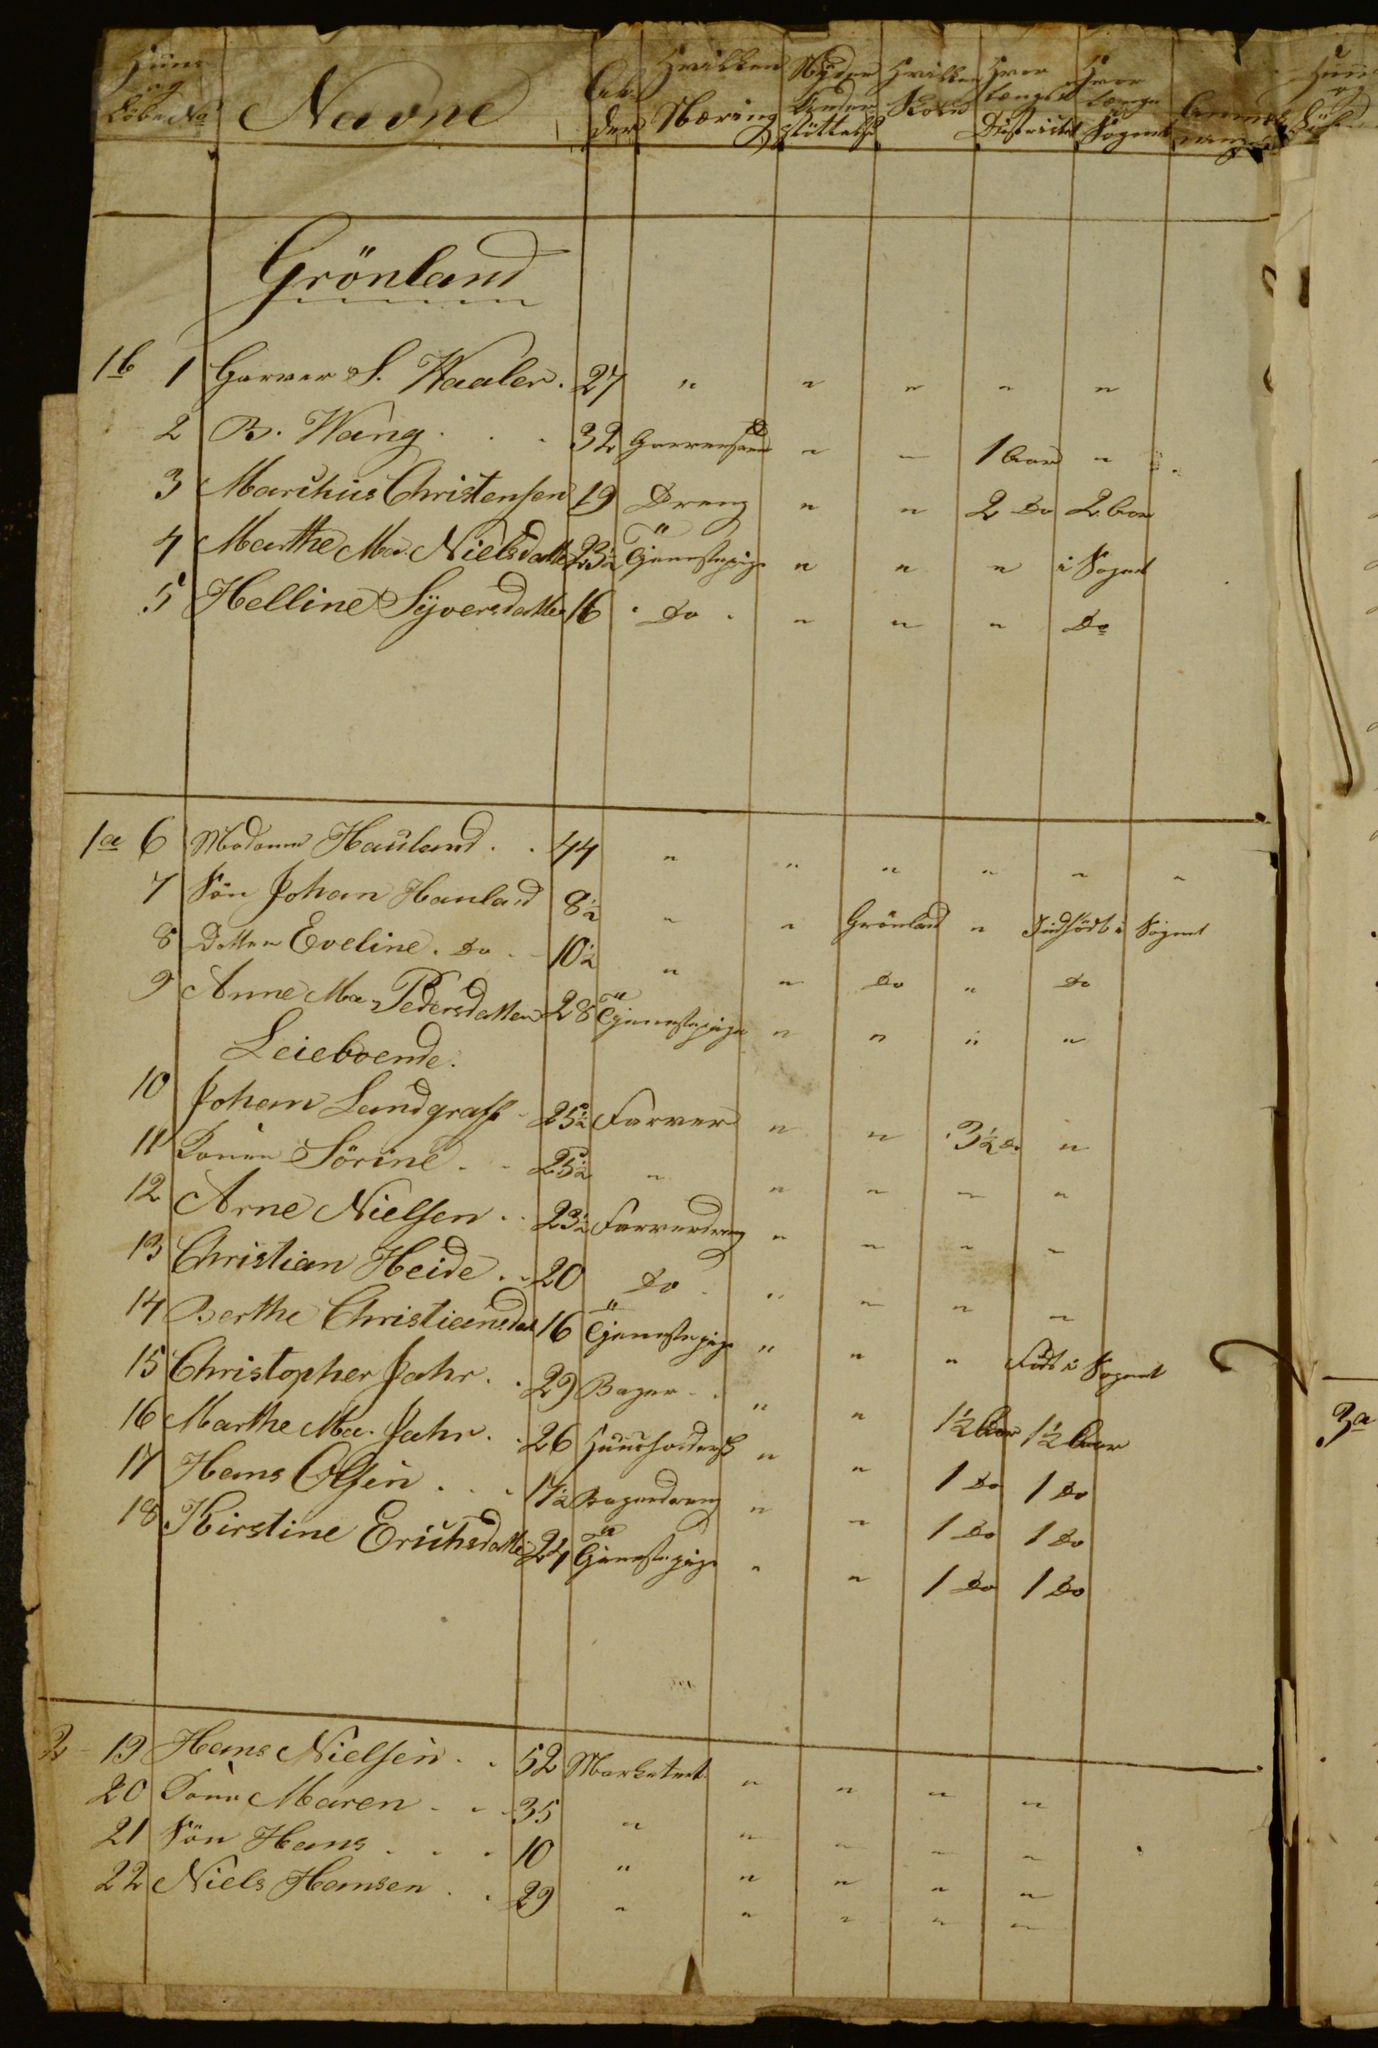 Huus og Löbe No | Navne | Alder | Hvilken Næring | Nyder Understöttelse | Hvilken Skole | Hvor længe i Districtet | Hvor længe i Sognet
Grönland
1b 1 Garver S. Waaler. 27 " " " " "
2 B. Wang . . . 32 Garversvend " " 1 Aar "
3 Marthius Christensen 19 Dreng " " 2 Do 2 Aar
4 Marthe Ma. Nielsdatter 23½ Tjenestepige " " " i Sognet
5 Helline Syversdatter 16 Do " " " Do
1a 6 Madame Hauland . . 44 " " " " " "
7 Sön Johan Hauland 8½ " " Grönland " Födt i Sognet
8 Datter Eveline. Do. 10½ " " Do " Do
9 Anne Ma. Pedersdatter 28 Tjenestepige " " " "
Leieboende.
10 Johan Landgraff 25½ Farver " " 3½ Do "
11 Konen Sörine . . 25½ " " " " "
12 Arne Nielsen . . 23½ Farverdreng " " " "
13 Christian Heide . . 20 Do " " " "
14 Berthe Christiansdat 16 Tjenestepige " " " Födt i Sognet
15 Christopher Jahr . . 29 Bager . . " " 1½ Aar 1½ Aar
16 Marthe Ma. Jahr. . 26 Huusholderske " " 1 Do 1 Do
17 Hans Olsen . . . 17½ Bagerdreng " " 1 Do 1 Do
18 Kirstine Erichsdatter 24 Tjenestepige " " 1 Do 1 Do
2 19 Hans Nielsen . . 52 Marketent. " " " "
20 Kone Maren . . . 35 " " " " "
21 Sön Hans . . . 10 " " " " "
22 Niels Hansen . . 29 " " " " "
3a